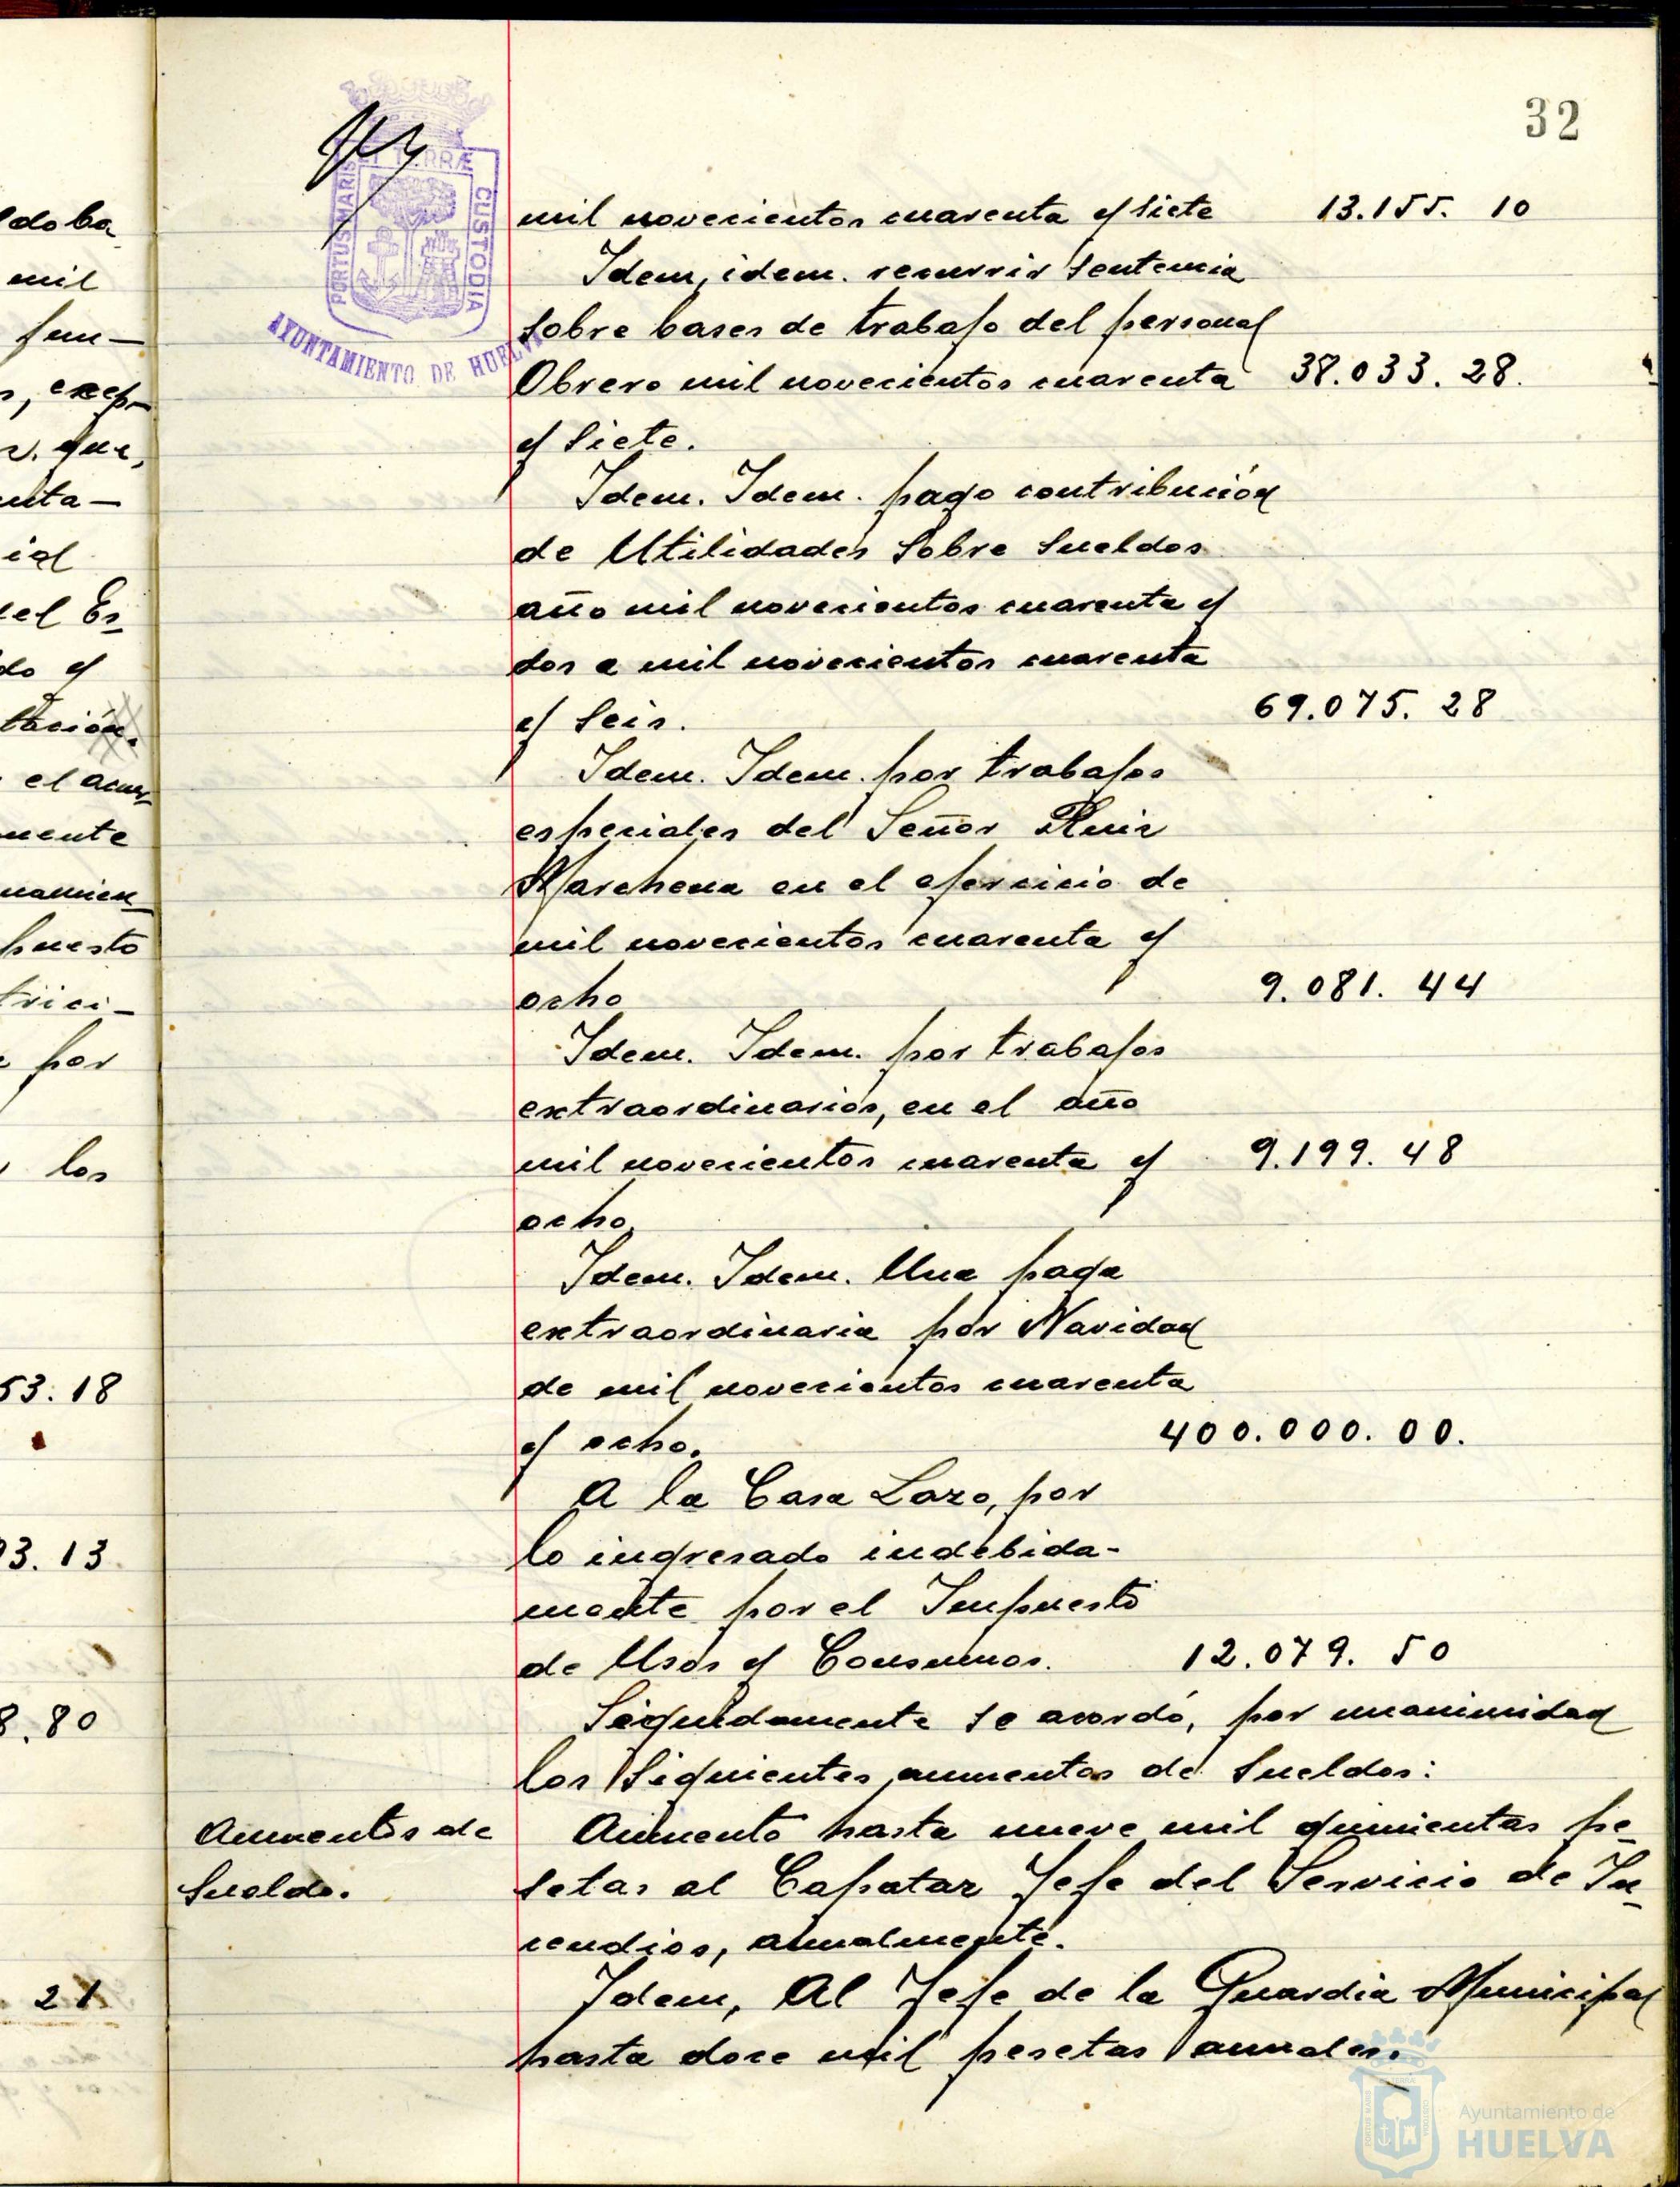 32
PORTUS MARIS ET TERRÆ CUSTODIA
AYUNTAMIENTO DE HUELVA
mil novecientos cuarenta y siete 13.155. 10
Idem, idem. recurrir sentencia
sobre bases de trabajo del personal
Obrero mil novecientos cuarenta 38.033. 28.
y siete.
Idem. Idem. pago contribución
de Utilidades sobre sueldos
año mil novecientos cuarenta y
dos a mil novecientos cuarenta
y seis. 69.075. 28
Idem. Idem. por trabajos
especiales del Señor Ruiz
Marchena en el ejercicio de
mil novecientos cuarenta y
ocho 9.081. 44
Idem. Idem. por trabajos
extraordinarios, en el año
mil novecientos cuarenta y 9.199. 48
ocho,
Idem. Idem. Una paga
extraordinaria por Navidad
de mil novecientos cuarenta
y ocho. 400.000. 00.
A la Casa Lazo, por
lo ingresado indebida-
mente por el Impuesto
de Usos y Consumos. 12.079. 50
Seguidamente se acordó, por unanimidad
los siguientes aumentos de sueldos:
Aumentos de
Sueldo.
Aumento hasta nueve mil quinientas pe-
setas al Capataz Jefe del Servicio de In-
cendios, anualmente.
Idem, Al Jefe de la Guardia Municipal
hasta doce mil pesetas anuales.
do ba
mil
fun-
s, excep-
que,
nta-
ial
del Es-
do y
tación.
el acuer-
mente
namien-
puesto
trici-
por
los
53. 18
93. 13
8. 80
21
Ayuntamiento de
HUELVA